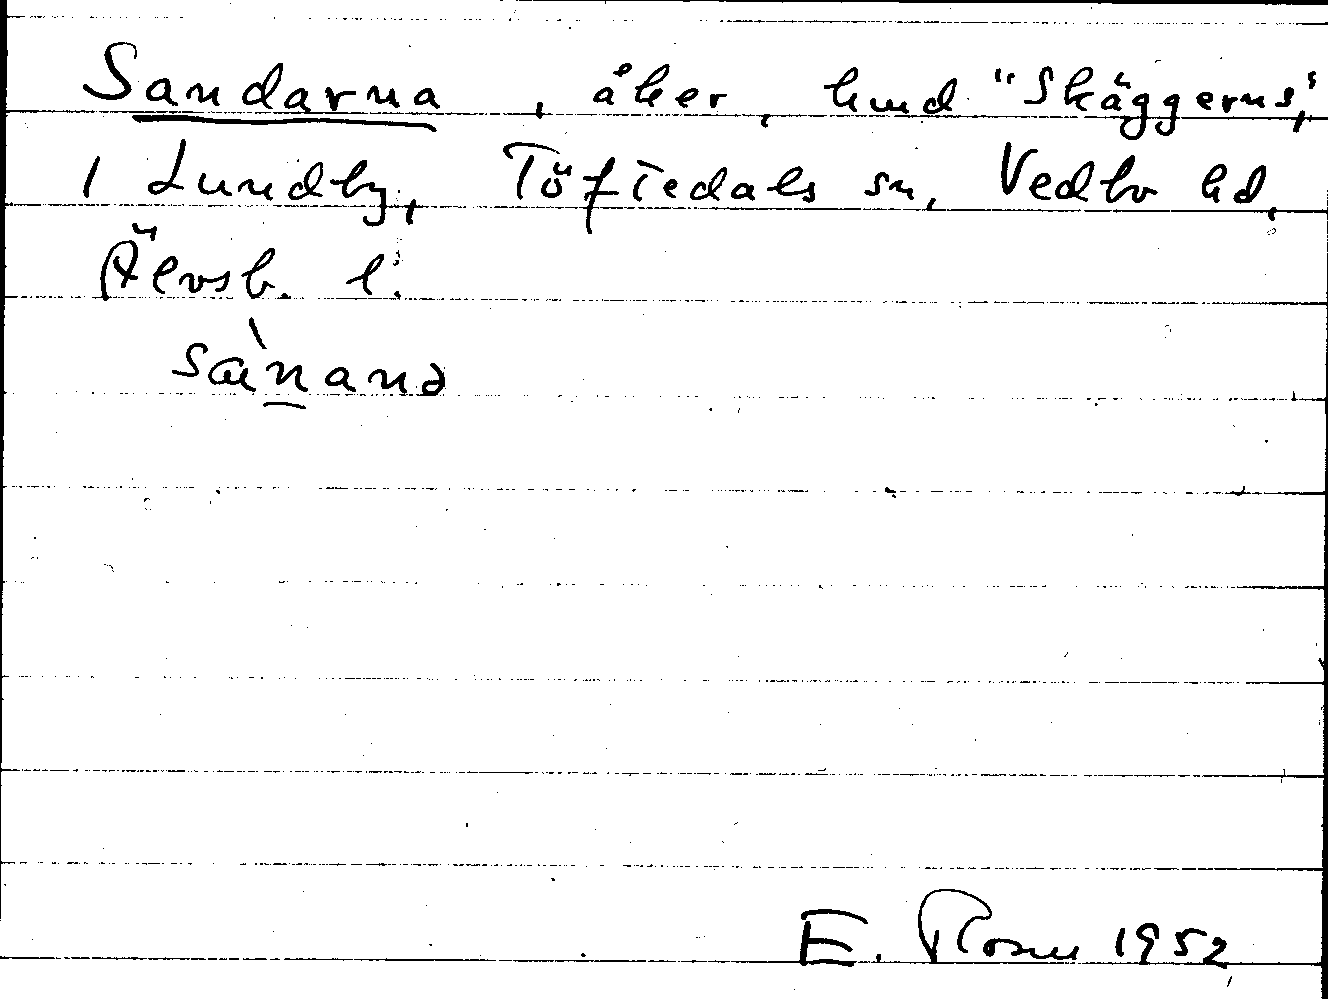 Sandarna, åker, hmd "Skäggerns",
i Lundby, Töftedals sn, Vedbo hd,
Älvsb. l.
sànanə
E. Rosen 1952